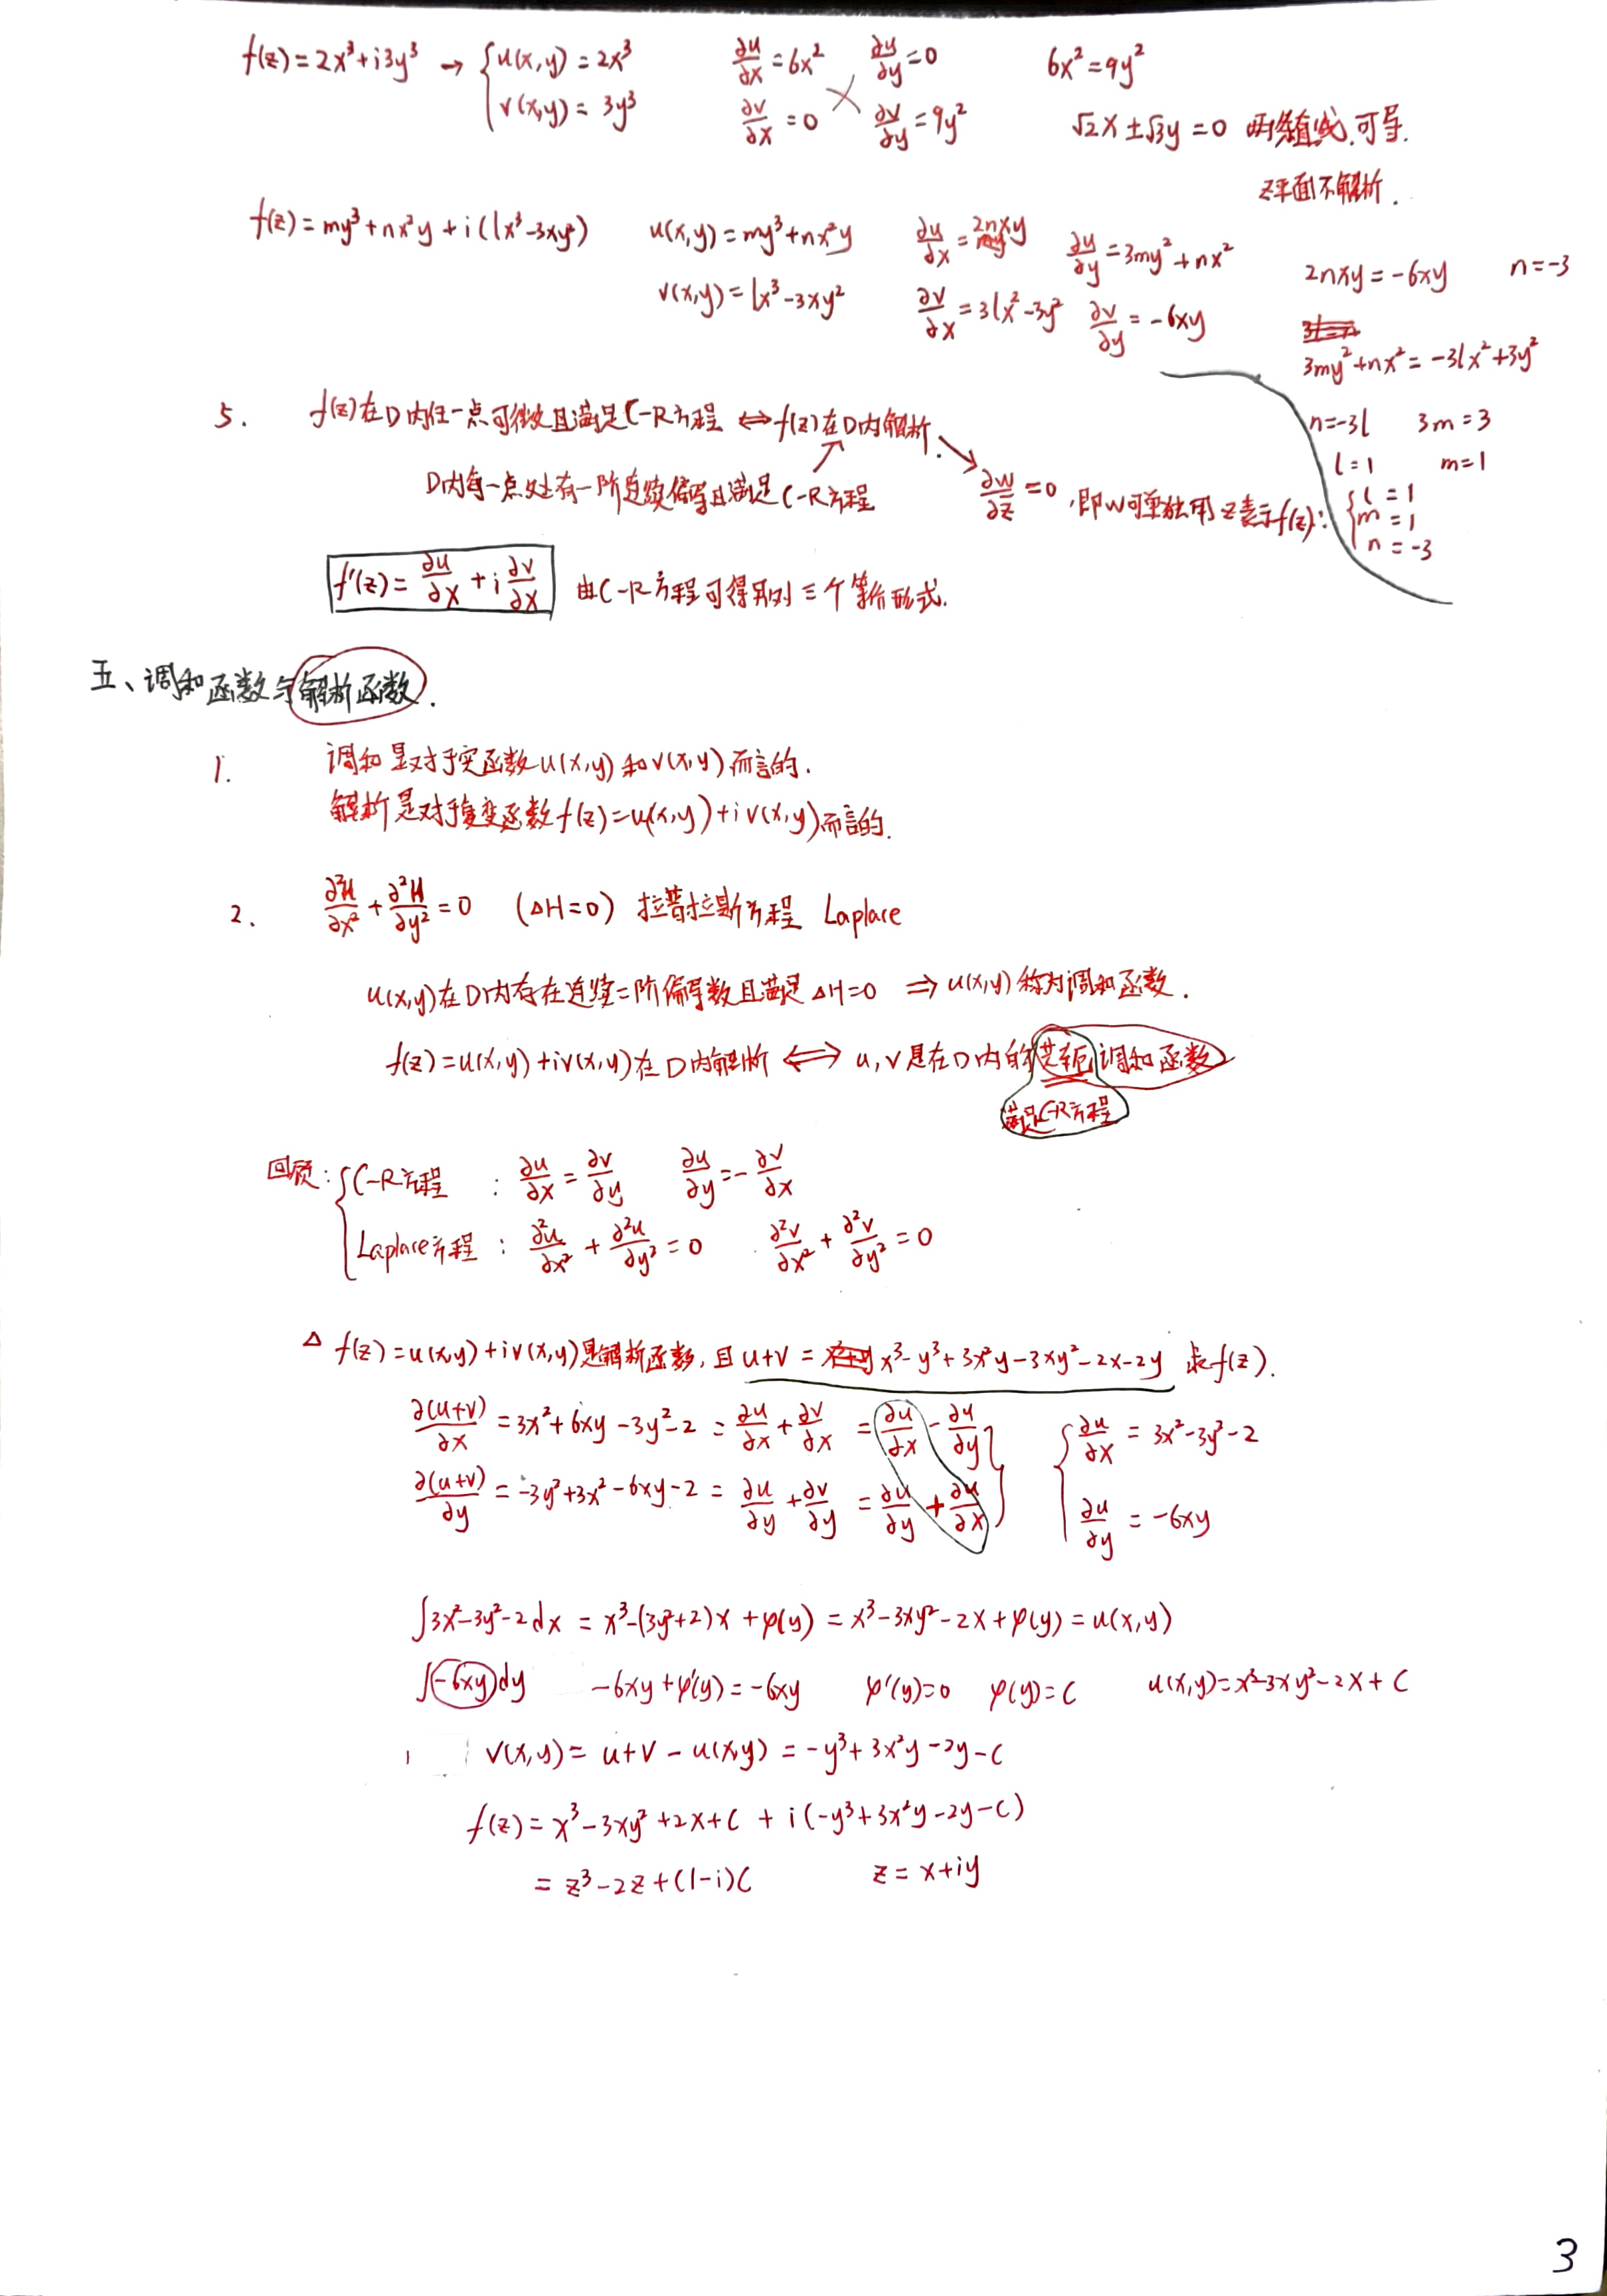 f(z)=2x³+i3y³ → { u(x,y)=2x³   ∂u/∂x=6x²   ∂u/∂y=0   6x²=9y²
v(x,y)=3y³   ∂v/∂x=0   ∂v/∂y=9y²   √2x±√3y=0 两条直线.可导.
z平面不解析.
f(z)=my³+nx²y+i(lx³-3xy²)   u(x,y)=my³+nx²y   ∂u/∂x=2nxy   ∂u/∂y=3my²+nx²   2nxy=-6xy   n=-3
v(x,y)=lx³-3xy²   ∂v/∂x=3lx²-3y²   ∂v/∂y=-6xy
3my²+nx²=-3lx²+3y²
n=-3l   3m=3
l=1   m=1
{ l=1
m=1
n=-3
5. f(z)在D内任一点可微且满足C-R方程 ⇔ f(z)在D内解析.
D内每一点处有一阶连续偏导且满足C-R方程   ∂w/∂z̄=0,即w可单独用z表示f(z).
f'(z)=∂u/∂x+i∂v/∂x   由C-R方程可得另外三个等价形式.
五、调和函数与解析函数.
1. 调和是对于实函数u(x,y)和v(x,y)而言的.
解析是对于复变函数f(z)=u(x,y)+iv(x,y)而言的.
2. ∂²H/∂x²+∂²H/∂y²=0   (ΔH=0) 拉普拉斯方程 Laplace
u(x,y)在D内存在连续二阶偏导数且满足ΔH=0 ⇒ u(x,y)称为调和函数.
f(z)=u(x,y)+iv(x,y)在D内解析 ⇔ u,v是在D内的共轭调和函数
满足C-R方程
回顾: { C-R方程 : ∂u/∂x=∂v/∂y   ∂u/∂y=-∂v/∂x
Laplace方程 : ∂²u/∂x²+∂²u/∂y²=0   ∂²v/∂x²+∂²v/∂y²=0
Δ f(z)=u(x,y)+iv(x,y)是解析函数,且u+v=x³-y³+3x²y-3xy²-2x-2y 求f(z).
∂(u+v)/∂x=3x²+6xy-3y²-2=∂u/∂x+∂v/∂x=∂u/∂x-∂u/∂y   { ∂u/∂x=3x²-3y²-2
∂(u+v)/∂y=-3y²+3x²-6xy-2=∂u/∂y+∂v/∂y=∂u/∂y+∂u/∂x   ∂u/∂y=-6xy
∫3x²-3y²-2dx=x³-(3y²+2)x+φ(y)=x³-3xy²-2x+φ(y)=u(x,y)
∫(-6xy)dy   -6xy+φ'(y)=-6xy   φ'(y)=0   φ(y)=C   u(x,y)=x³-3xy²-2x+C
v(x,y)=u+v-u(x,y)=-y³+3x²y-2y-C
f(z)=x³-3xy²+2x+C+i(-y³+3x²y-2y-C)
=z³-2z+(1-i)C   z=x+iy
3